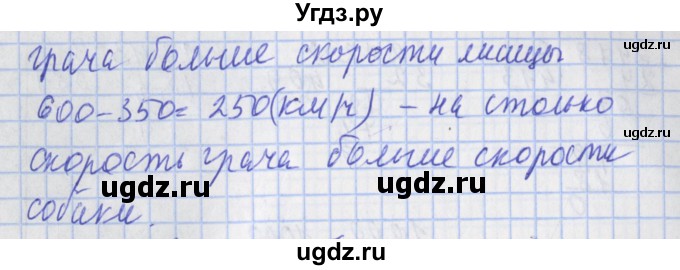 Угдз.ру
грача больше скорости лисицы
600-350= 250(км/ч) - на столько
скорость грача больше скорости
собаки.
ugdz.ru
ugdz.ru
ugdz.ru
ugdz.ru
ugdz.ru